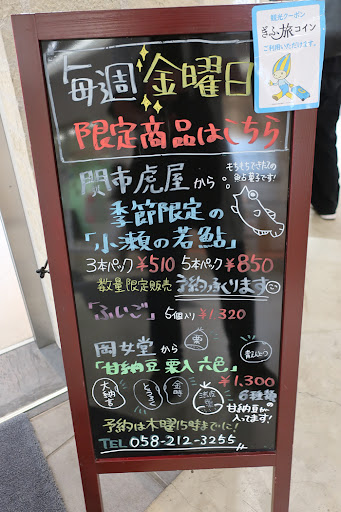 観光クーポン
ぎふ旅コイン
ご利用いただけます。
毎週金曜日
限定商品はこちら
関市虎屋から
もちもちできたての
鮎菓子です!
季節限定の
「小瀬の若鮎」
3本パック ¥510 5本パック ¥850
数量限定販売 予約承ります
「ふいご」 5個入り ¥1,320
岡女堂から
栗
「甘納豆 栗入 六色」
¥1,300
大納言
とら豆
金時
6種類の
甘納豆が
入ってます!
予約は木曜15時までに!
TEL 058-212-3255